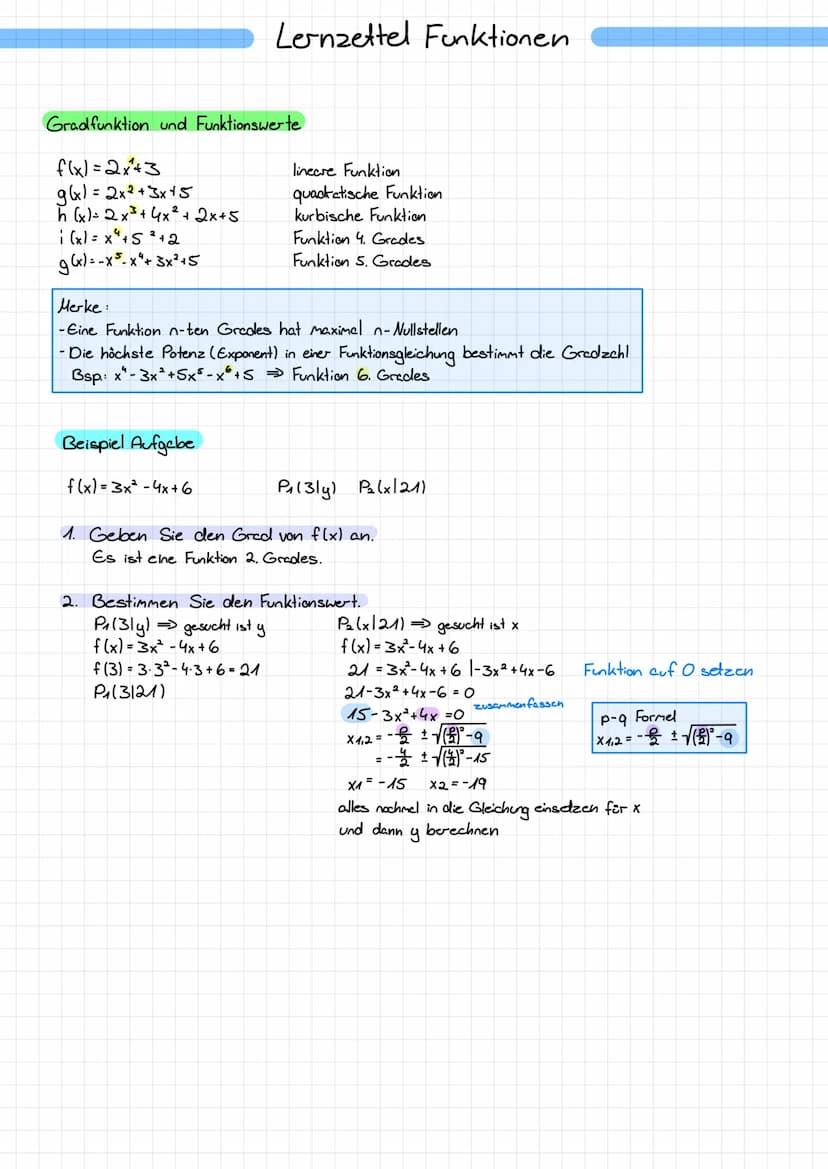 Lernzettel Funktionen
Gradfunktion und Funktionswerte
f(x) = 2x¹+3 lineare Funktion
g(x) = 2x² + 3x+5 quadratische Funktion
h (x)= 2x³+ 4x² + 2x+5 kurbische Funktion
i (x) = x⁴+5 ²+2 Funktion 4. Grades
g(x) = -x⁵- x⁴+ 3x²+5 Funktion 5. Grades
Merke:
-Eine Funktion n-ten Grades hat maximal n-Nullstellen
- Die höchste Potenz (Exponent) in einer Funktionsgleichung bestimmt die Gradzahl
Bsp: x⁴ - 3x² +5x⁵ - x⁶ +5 ⇒ Funktion 6. Grades
Beispiel Aufgabe
f(x) = 3x² - 4x + 6 P₁(3|y) P₂(x|21)
1. Geben Sie den Grad von f(x) an.
Es ist eine Funktion 2. Grades.
2. Bestimmen Sie den Funktionswert.
P₁(3|y) ⇒ gesucht ist y
f(x) = 3x² - 4x + 6
f(3) = 3·3² - 4·3 + 6 = 21
P₁(3|21)
P₂(x|21) ⇒ gesucht ist x
f(x) = 3x²- 4x + 6
21 = 3x²- 4x + 6 |-3x² + 4x - 6 Funktion auf 0 setzen
21 - 3x² + 4x - 6 = 0
15 - 3x² + 4x = 0 zusammenfassen
x1,2 = - p/2 ± √(p/2)² - q
= - 4/2 ± √(4/2)² - 15
x1 = -15 x2 = -19
alles nochmal in die Gleichung einsetzen für x
und dann y berechnen
p-q Formel
x1,2 = - p/2 ± √(p/2)² - q